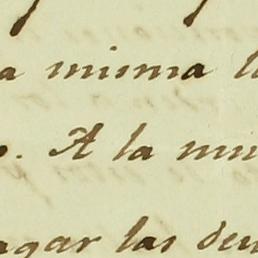 a misma l
. A la mu
agar las deu